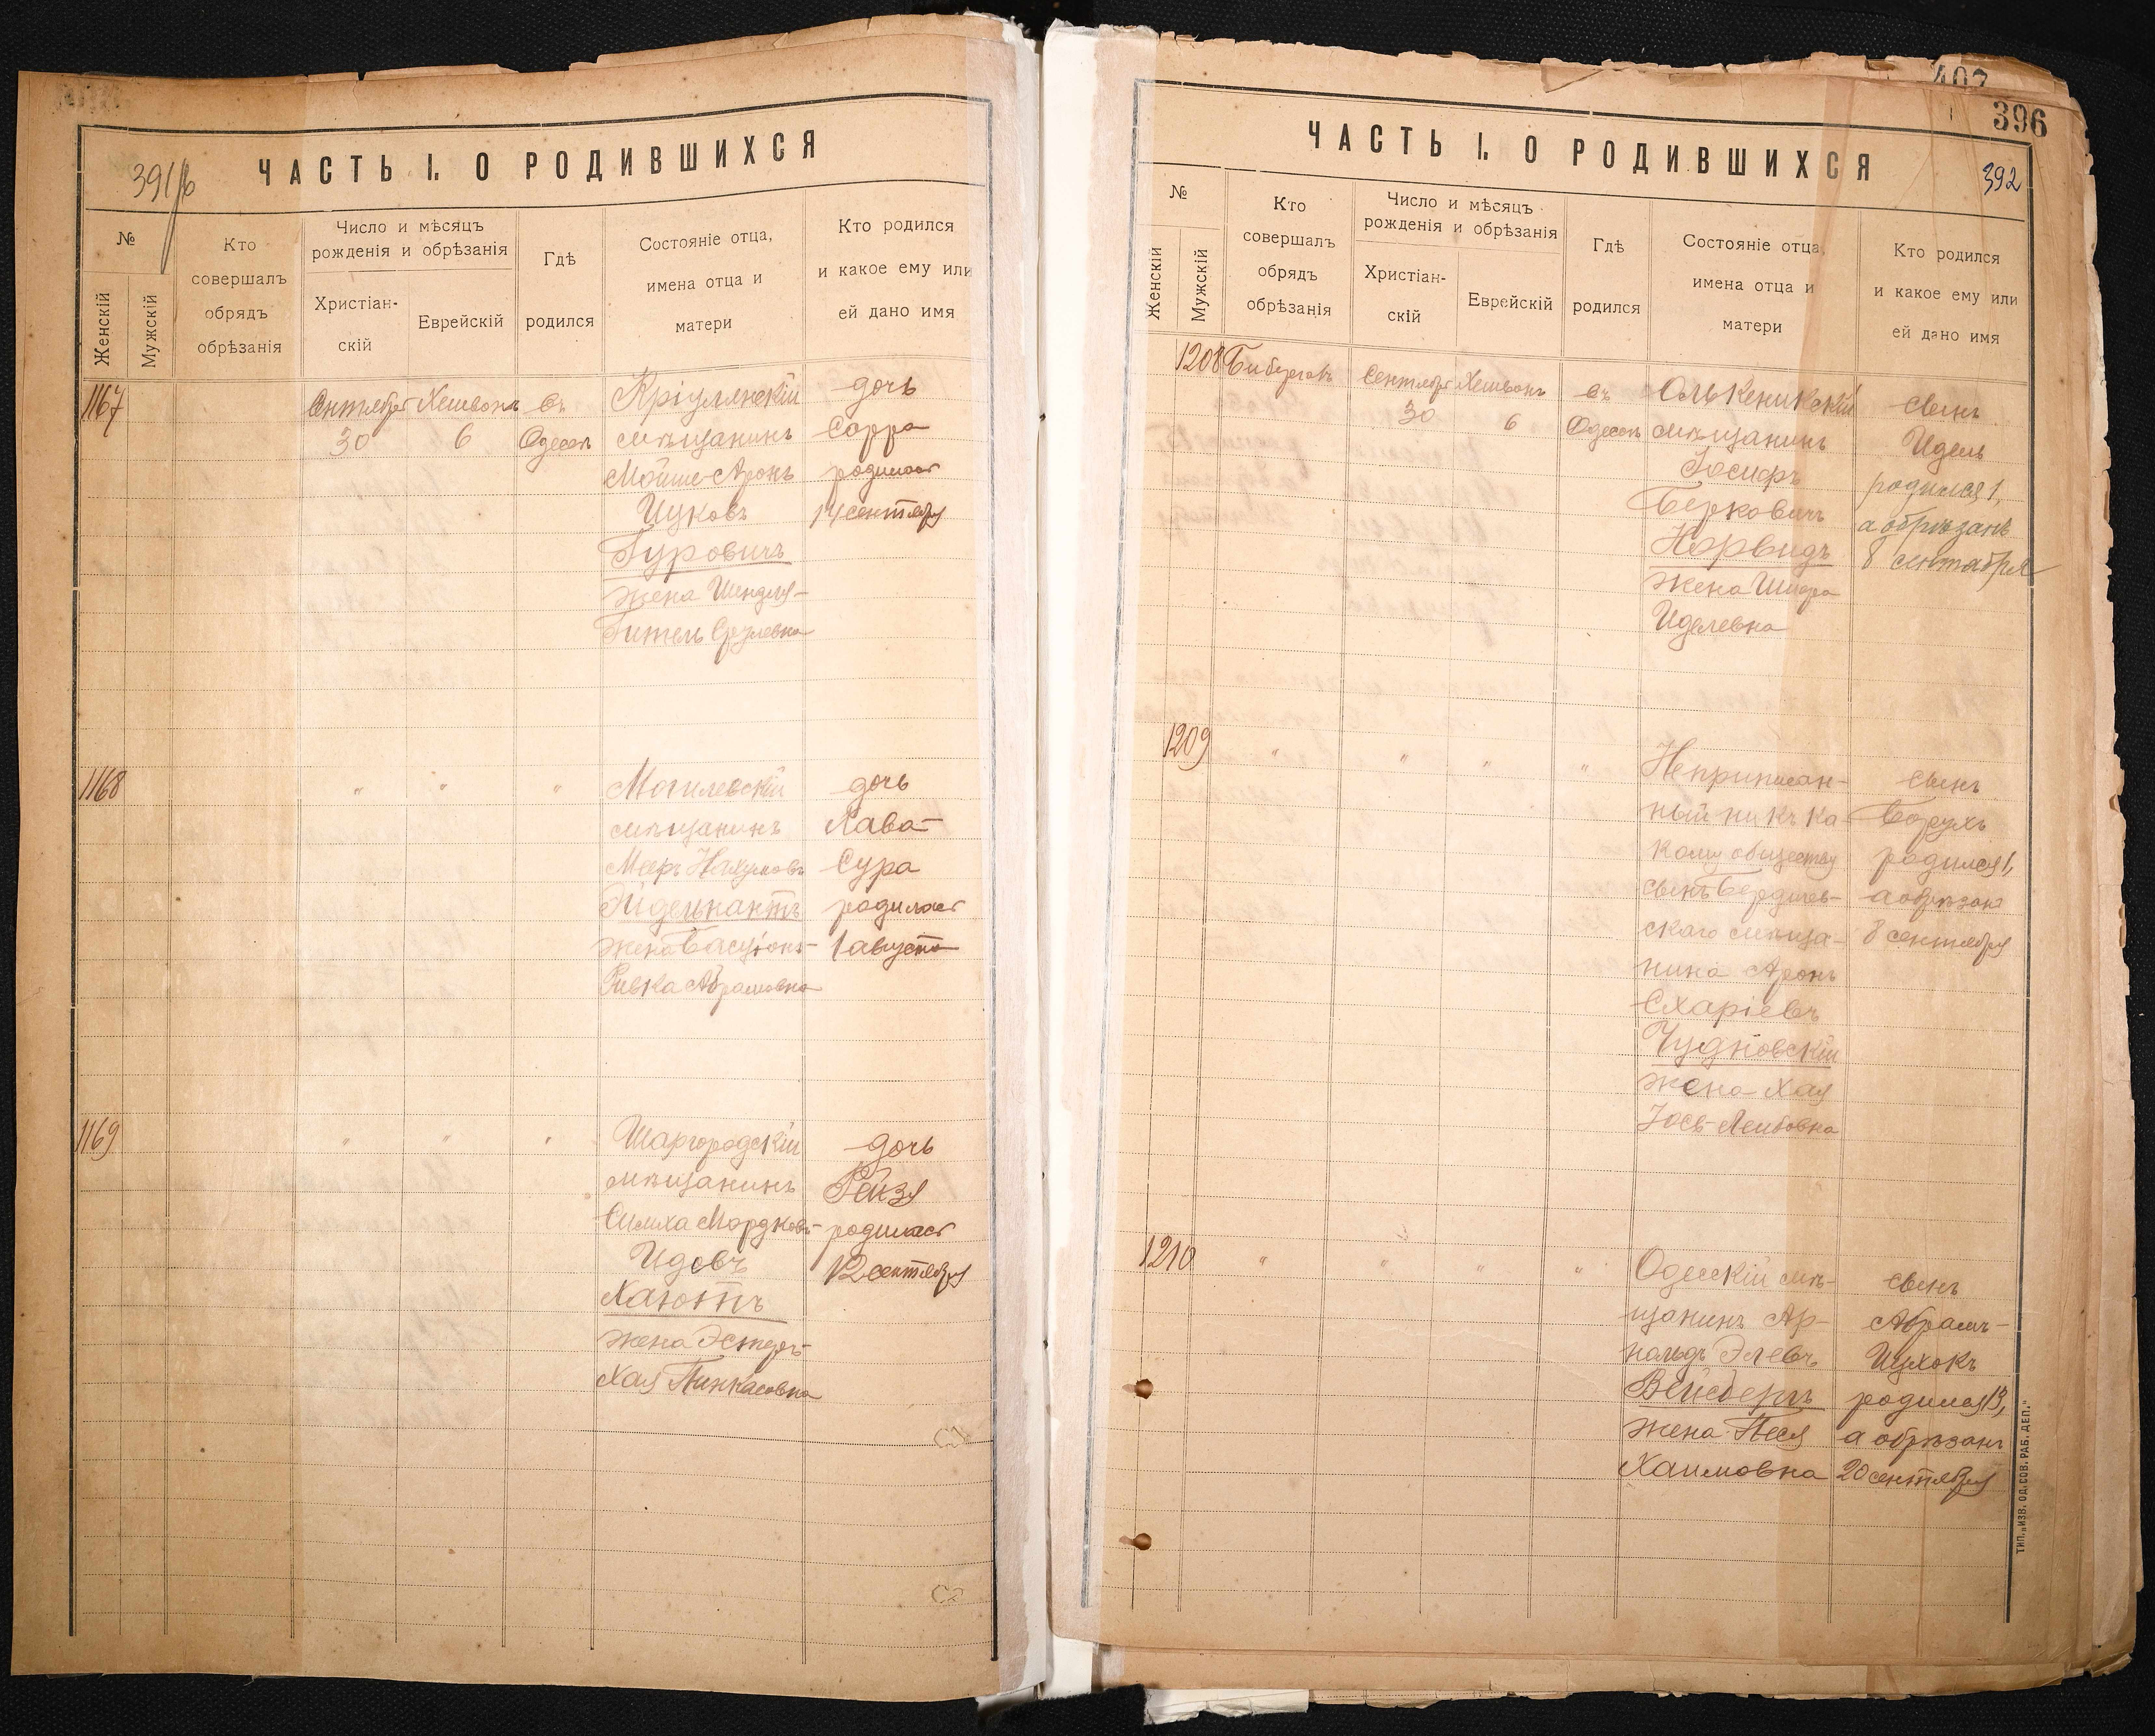 391/б
ЧАСТЬ I. О РОДИВШИХСЯ
№
Женскій
Мужскій
Кто
совершалъ
обрядъ
обрѣзанія
Число и мѣсяцъ
рожденія и обрѣзанія
Христіан-
скій
Еврейскій
Гдѣ
родился
Состояніе отца,
имена отца и
матери
Кто родился
и какое ему или
ей дано имя
1167
Сентября
30
Хешвонъ
6
Въ
Одессѣ
Кріулянскій
мѣщанинъ
Мойше-Аронъ
Ицковъ
Гуровичъ
жена Шендля-
Гитель Срулевна
дочь
Сорра
родилась
14 сентября
1168
" " "
Могилевскій
мѣщанинъ
Мееръ Нахумовъ
Эйделькантъ
жена Басціонъ-
Ривка Абрамовна
дочь
Хава-
Сура
родилась
1 августа
1169
" " "
Шаргородскій
мѣщанинъ
Симха Мордковъ-
Идовъ
Хаютъ
жена Эстеръ-
Хая Пинкасовна
дочь
Рейзя
родилась
12 сентября
С2
407
396
392
ЧАСТЬ I. О РОДИВШИХСЯ
№
Женскій
Мужскій
Кто
совершалъ
обрядъ
обрѣзанія
Число и мѣсяцъ
рожденія и обрѣзанія
Христіан-
скій
Еврейскій
Гдѣ
родился
Состояніе отца,
имена отца и
матери
Кто родился
и какое ему или
ей дано имя
1208
Сентября
30
Хешвонъ
6
Въ
Одессѣ
Олькеникскій
мѣщанинъ
Іосифъ
Берковичъ
Норвидъ
жена Шифра
Иделевна
сынъ
Идель
родился 1,
а обрѣзанъ
8 сентября
1209
" " " "
Неприписан-
ный ни къ ка-
кому обществу
сынъ Бердичев-
скаго мѣща-
нина Аронъ
Схаріевъ
Чудновскій
жена Хая
Іось-Лейбовна
сынъ
Борухъ
родился 1,
а обрѣзанъ
8 сентября
1210
" " " "
Одесскій мѣ-
щанинъ Ар-
нольдъ Элевъ
Вейсбергъ
жена Песя
Хаимовна
сынъ
Абрамъ-
Ицхокъ
родился 13,
а обрѣзанъ
20 сентября
ТИП. „ИЗВ. ОД. СОВ. РАБ. ДЕП."